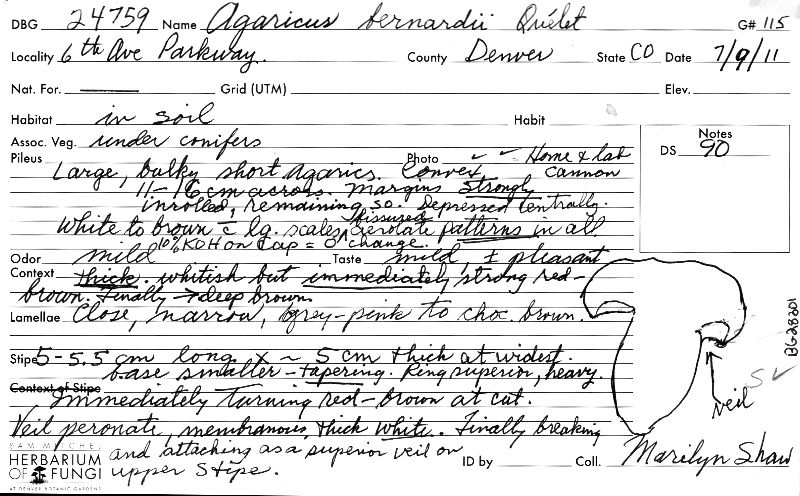 DBG 24759 Name Agaricus bernardii Quélet G# 115
Locality 6th Ave Parkway. County Denver State CO Date 7/9/11
Nat. For. Grid (UTM) Elev.
Habitat in soil Habit
Assoc. Veg. under conifers
Notes
DS 90
Pileus Photo ✓ ✓ Home & lab
Large, bulky short Agarics. Convex, Cannon
11-16 cm across. Margins strongly
inrolled, remaining so. Depressed centrally.
White to brown c̄ lg. scales, fissured areolate patterns in all
10% KOH on Cap = 0 change.
Odor mild Taste mild, ± pleasant
Context thick. whitish but immediately, strong red-
brown. Finally → deep brown
Lamellae Close, narrow, grey-pink to choc. brown.
Stipe 5-5.5 cm long x ~ 5 cm thick at widest.
base smaller - tapering. Ring superior, heavy.
Context of Stipe
Immediately turning red-brown at cut.
Veil peronate, membranous, thick white. Finally breaking
and attaching as a superior veil on
upper stipe.
veil
S ✓
BG28201
SAM MITCHEL
HERBARIUM
OF FUNGI
AT DENVER BOTANIC GARDENS
ID by Coll. Marilyn Shaw